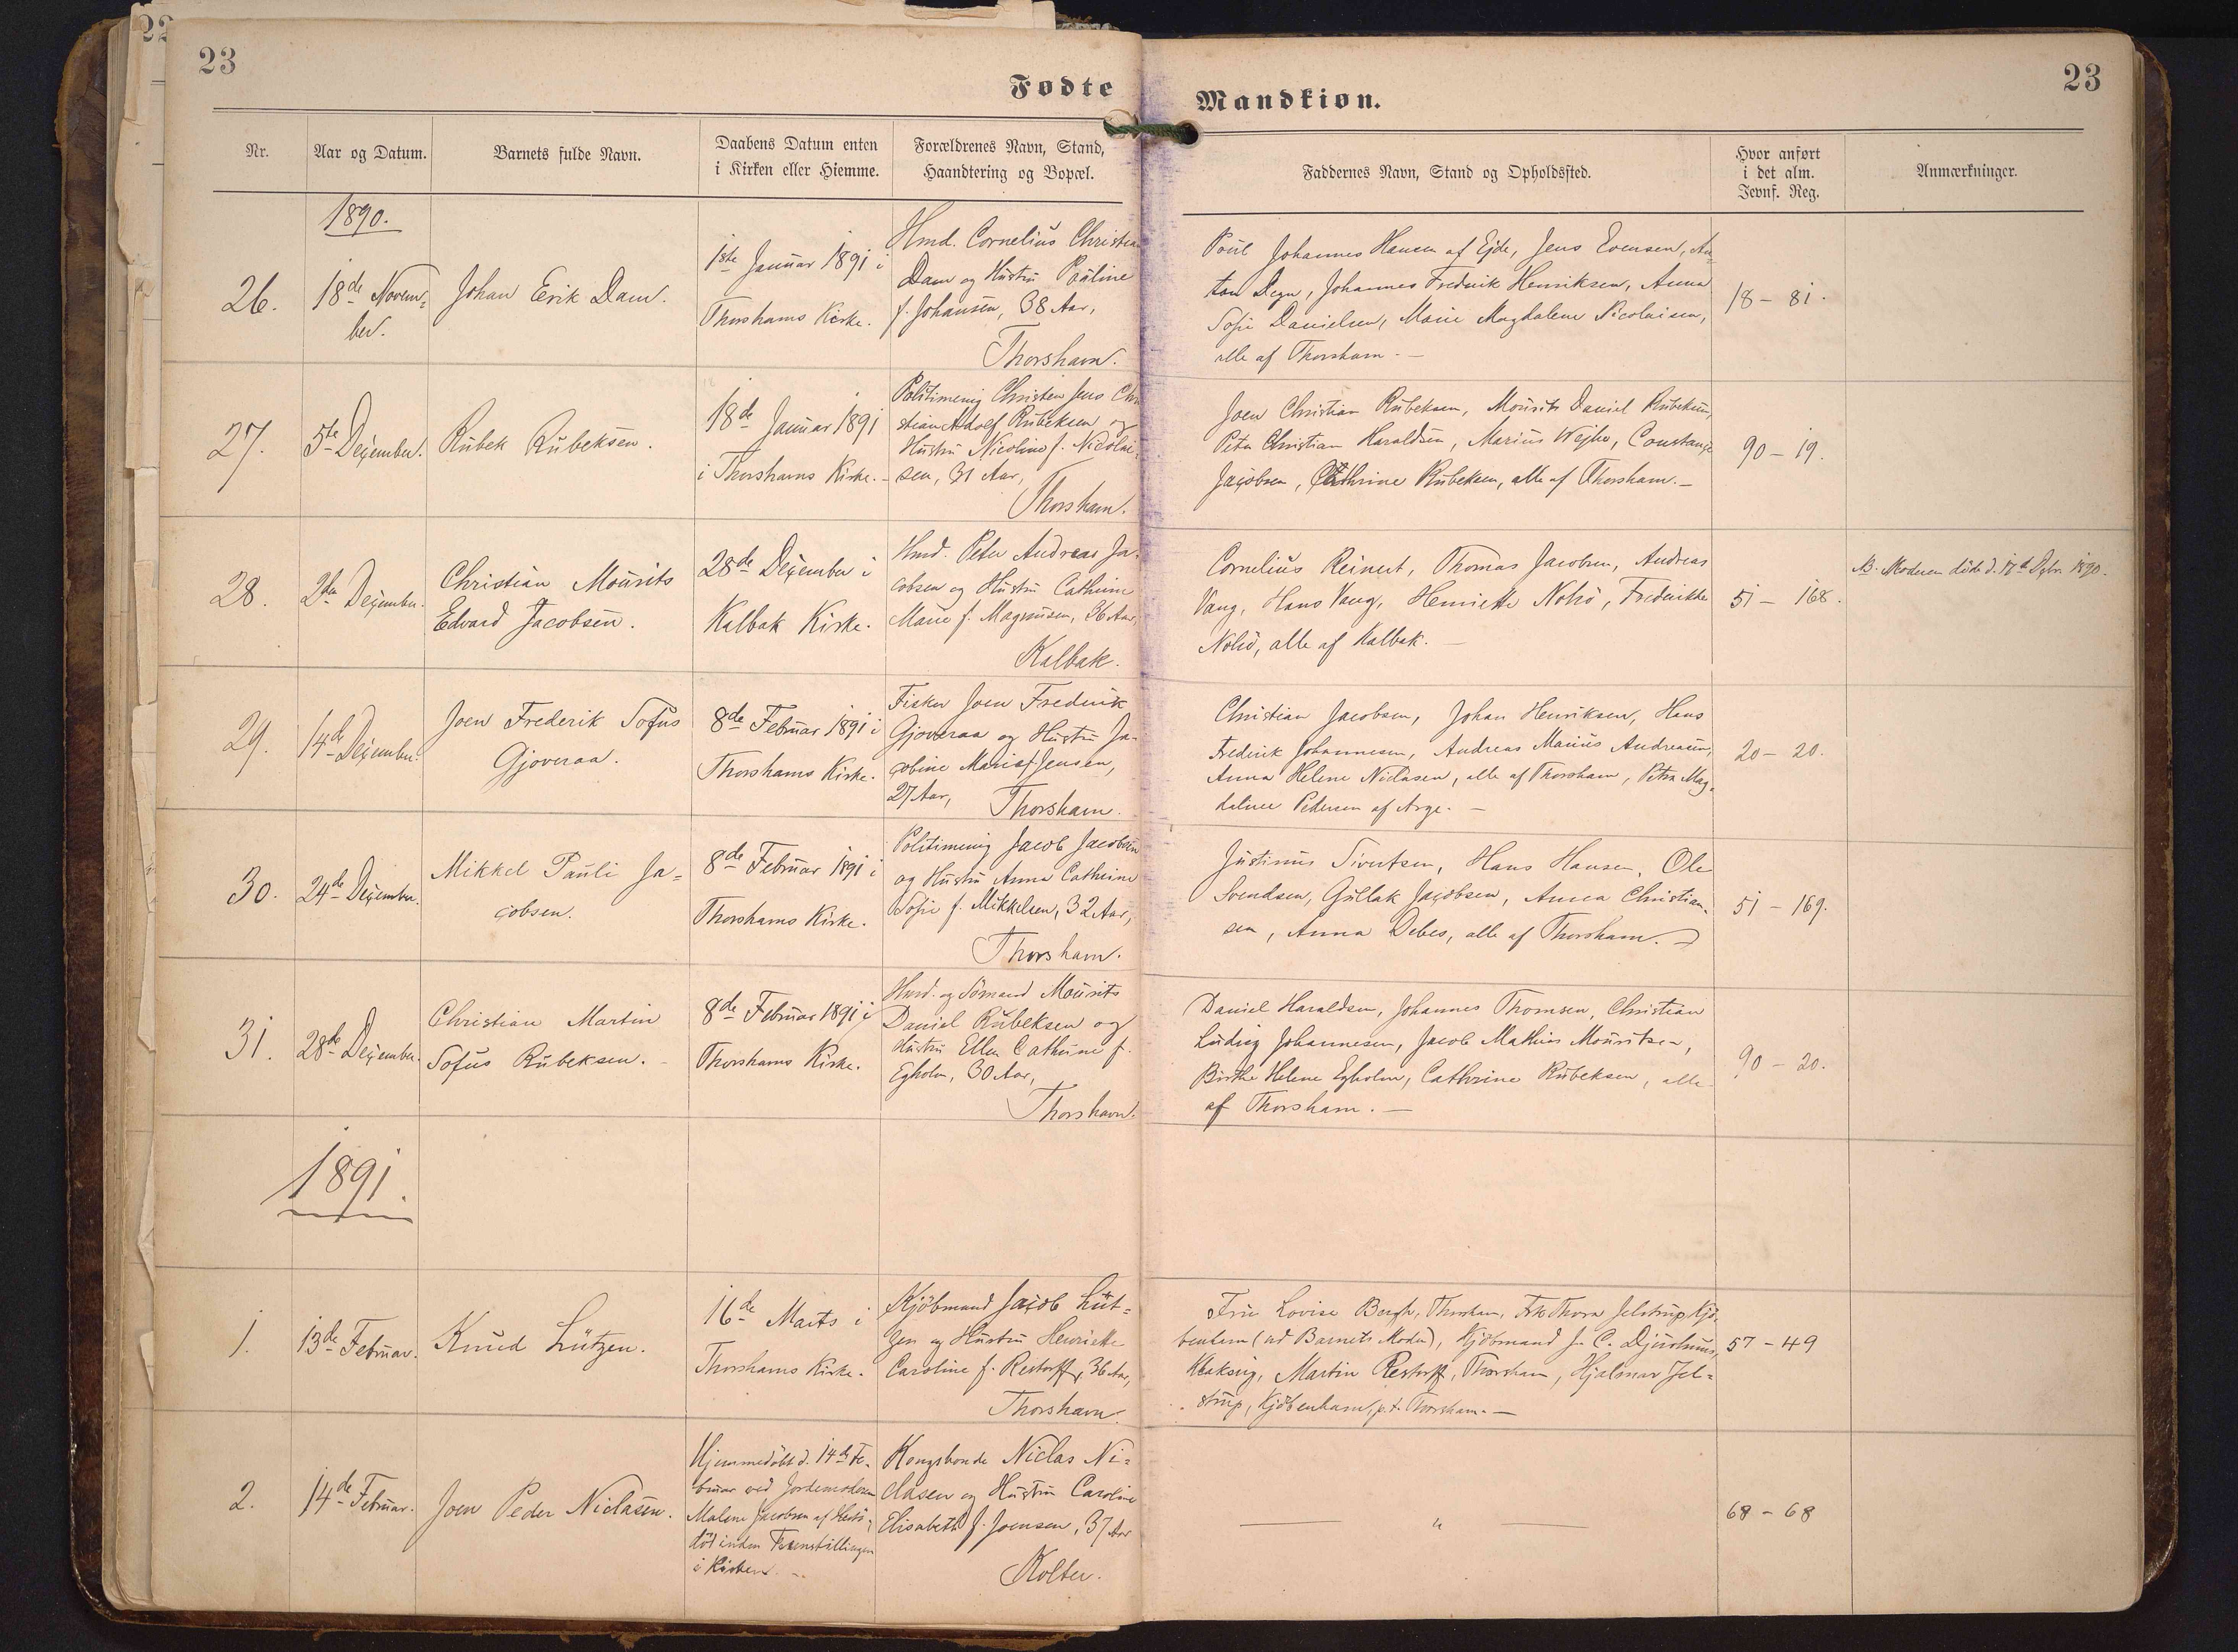 22
23
23
Fødte
Mandkiøn.
Nr.
Aar og Datum.
Barnets fulde Navn.
Daabens Datum enten
i Kirken eller Hiemme.
Forældrenes Navn, Stand,
Haandtering og Bopæl.
Faddernes Navn, Stand og Opholdssted.
Hvor anført
i det alm.
Jevnf. Reg.
Anmærkninger.
1890.
26.
18de Novem-
ber.
Johan Erik Dam.
1ste Januar 1891 i
Thorshavns Kirke.
Hmd. Cornelius Christian
Dam og Hustru Pauline
f. Johansen, 38 Aar,
Thorshavn.
Poul Johannes Hansen af Ejde, Jens Evensen, An-
ton Degn, Johannes Frederik Henriksen, Anna
Sofie Danielsen, Marie Magdalene Nicolaisen,
alle af Thorshavn. —
18 - 81.
27.
5te December.
Rubek Rubeksen.
18de Januar 1891
i Thorshavns Kirke. -
Politimenig Christen Jens Chri
stian Adolf Rubeksen og
Hustru Nicoline f. Nicolai-
sen, 31 Aar,
Thorshavn.
Joen Christian Rubeksen, Mourits Daniel Rubeksen,
Peter Christian Haraldsen, Marius Wejhe, Constance
Jacobsen, Cathrine Rubeksen, alle af Thorshavn. —
90 - 19.
28.
2den December.
Christian Mourits
Edvard Jacobsen.
28de December i
Kalbak Kirke.
Hmd. Peter Andreas Ja-
cobsen og Hustru Cathrine
Marie f. Magnusen, 36 Aar,
Kalbak.
Cornelius Reinert, Thomas Jacobsen, Andreas
Vang, Hans Vang, Henriette Nolsö, Frederikke
Nolsö, alle af Kalbak. —
51 - 168.
NB. Moderen döde d. 17de Dcbr. 1890.
29.
14de December.
Joen Frederik Sofus
Gjoveraa.
8de Februar 1891 i
Thorshavns Kirke.
Fisker Joen Frederik
Gjoveraa og Hustru Ja-
cobine Maria f. Jensen,
27 Aar,
Thorshavn.
Christian Jacobsen, Johan Henriksen, Hans
Frederik Johannesen, Andreas Marius Andreasen,
Anna Helene Niclasen, alle af Thorshavn, Petra Mag-
dalene Pedersen af Arge. —
20 - 20.
30.
24de December.
Mikkel Pauli Ja-
cobsen.
8de Februar 1891 i
Thorshavns Kirke.
Politimenig Jacob Jacobsen
og Hustru Anna Cathrine
Sofie f. Mikkelsen, 32 Aar,
Thorshavn.
Justinus Sivertsen, Hans Hansen, Ole
Svendsen, Gullak Jacobsen, Anna Christian-
sen, Anna Debes, alle af Thorshavn. —
51 - 169.
31.
28de December.
Christian Martin
Sofus Rubeksen.
8de Februar 1891 i
Thorshavns Kirke.
Hmd. og Sömand Mourits
Daniel Rubeksen og
Hustru Ellen Cathrine f.
Egholm, 30 Aar,
Thorshavn.
Daniel Haraldsen, Johannes Thomsen, Christian
Ludvig Johannesen, Jacob Mathias Mouritsen,
Birthe Helene Egholm, Cathrine Rubeksen, alle
af Thorshavn. —
90 - 20.
1891.
1.
13de Februar.
Knud Lützen.
16de Marts i
Thorshavns Kirke.
Kjöbmand Jacob Lüt-
zen og Hustru Henriette
Caroline f. Restorff, 36 Aar,
Thorshavn.
Fru Lovise Bergh, Thorshavn, Frk. Thora Jelstrup, Kjö-
benhavn (ved Barnets Moder), Kjöbmand J. C. Djurhuus,
Klaksvig, Martin Restorff, Thorshavn, Hjalmar Jel-
strup, Kjöbenhavn, p.t. Thorshavn. —
57 - 49
2.
14de Februar.
Joen Peder Niclasen.
Hjemmedöbt d. 14de Fe-
bruar ved Jordemoderen
Malene Jacobsen af Hestö;
död inden Fremstillingen
i Kirken. —
Kongsbonde Niclas Ni-
clasen og Hustru Caroline
Elisabeth f. Joensen, 37 Aar
Kolter.
— " —
68 - 68